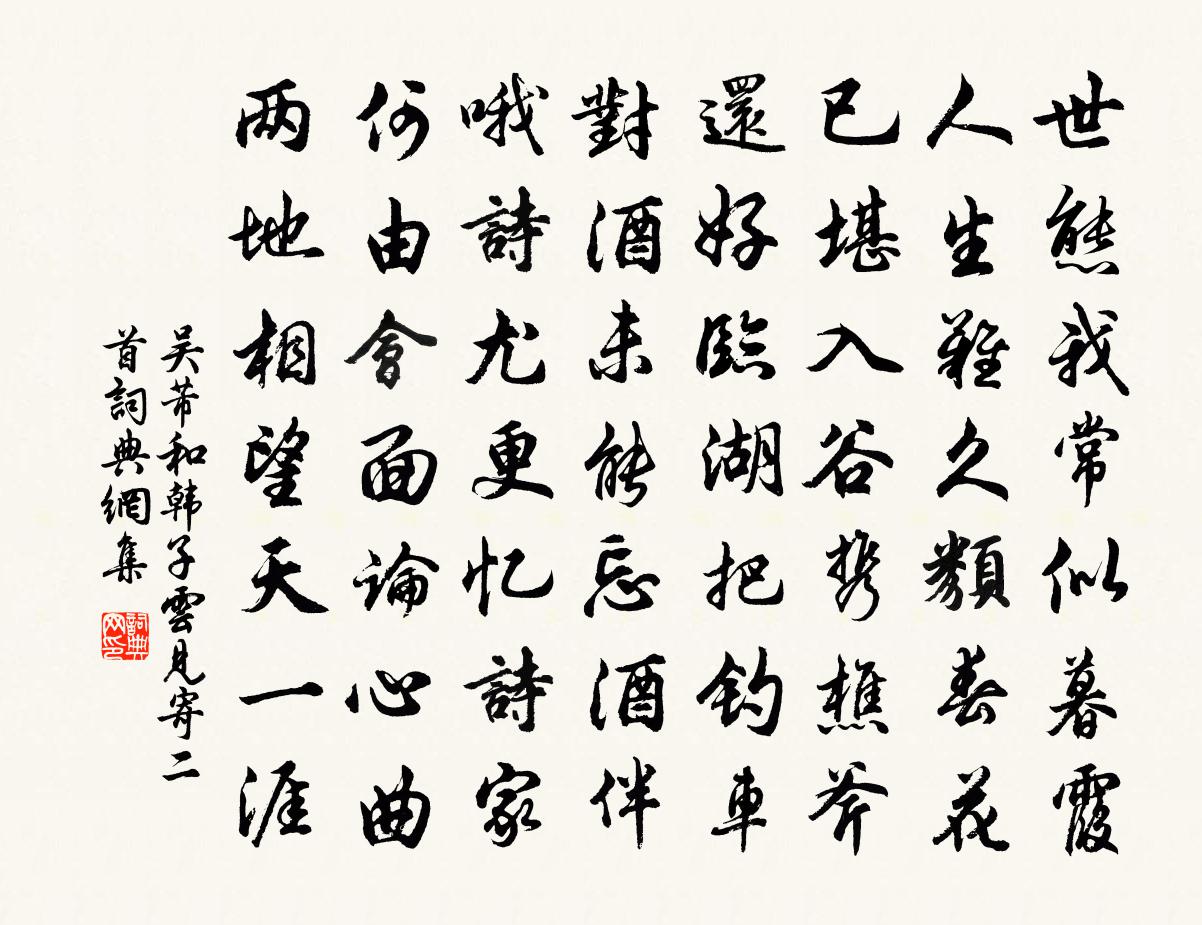 世態我常似暮霞
人生難久類春花
已堪入谷携樵斧
還好臨湖把钓車
對酒未能忘酒伴
哦詩尤更忆詩家
何由會面論心曲
两地相望天一涯
吴芾和韩子雲見寄二
首詞典網集
詞典
网印